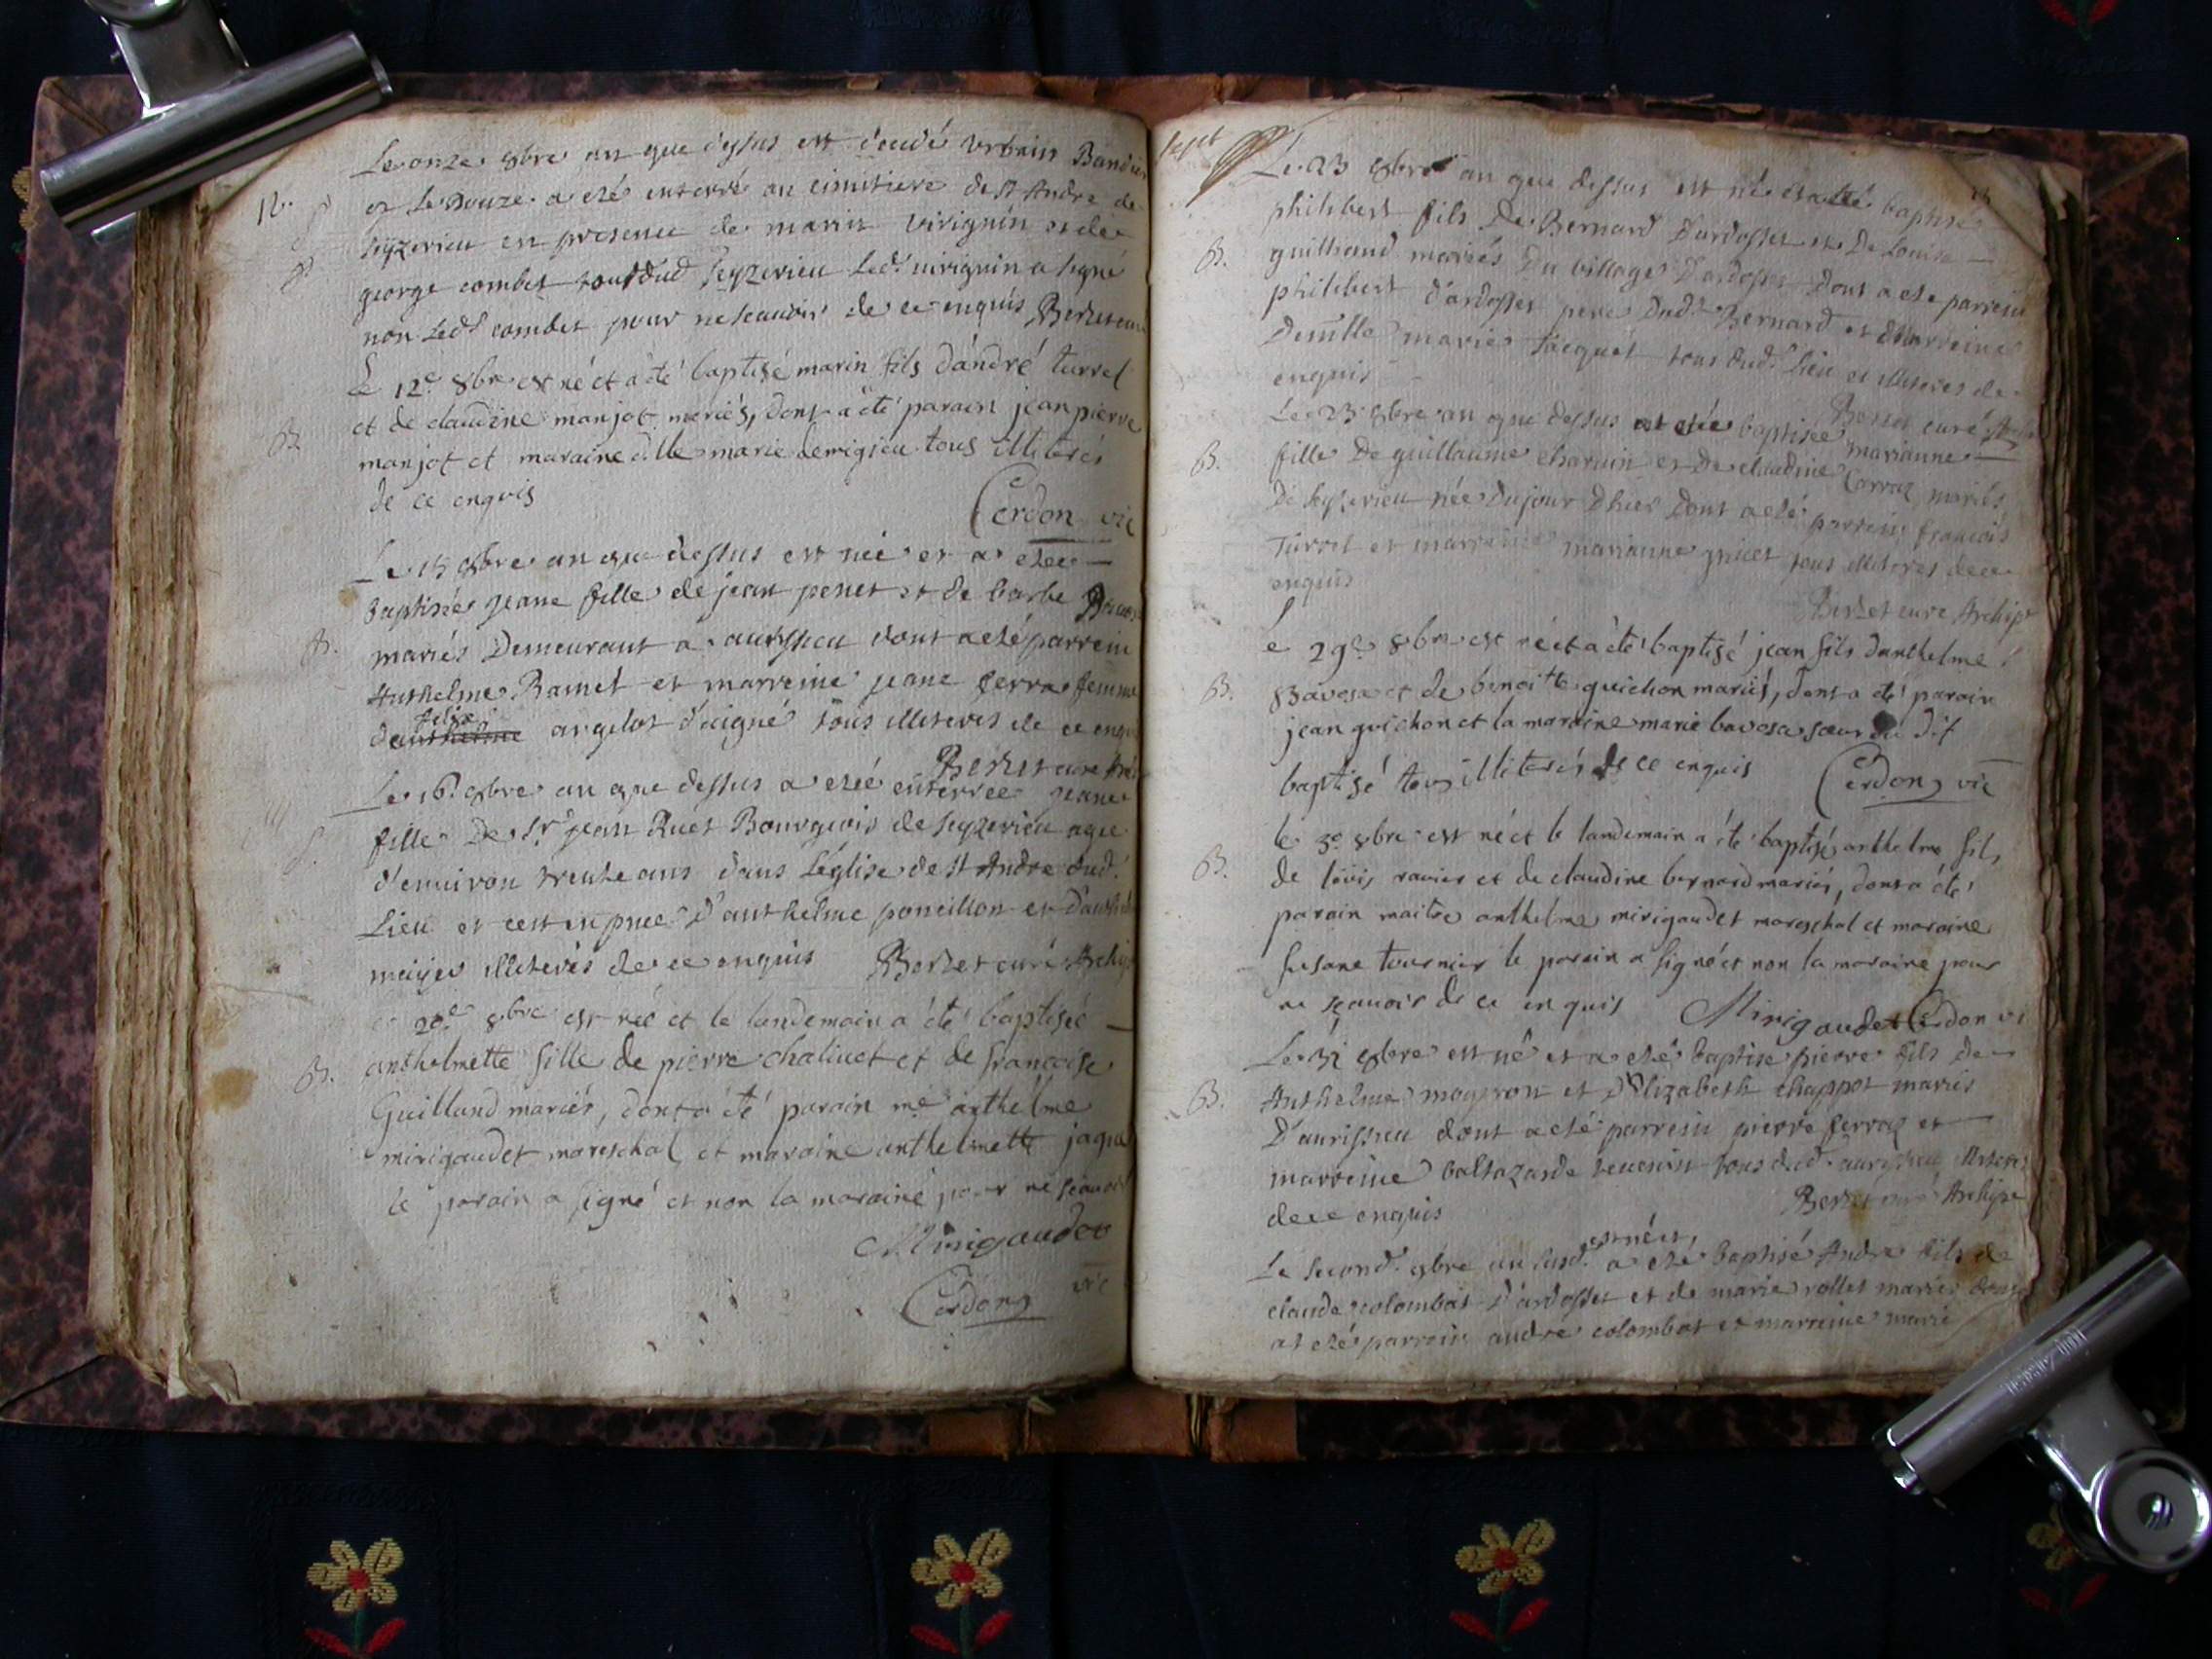 Le onze 8bre an que dessus est décédé Urbain
12. et le douze a eté enterré au cimitiere de St André de
Seyzerieu en presence de marin virignin et de
george combet tous dud Seyzerieu led. virignin a signé
non led. combet pour ne scauoir de ce enquis
Le 12e 8bre est né et a été baptisé marin fils d'andré turrel
et de claudine manjot mariés, dont a été parain jean pierre
B. manjot et maraine dlle marie demigieu tous illiterés
de ce enquis
Cerdon vic
Le 15 8bre an que dessus est née et a etée
baptisée jeane fille de jean penet et de barbe
B. mariés Demeurant a aurissieu dont a eté parrein
Anthelme Ramel et marreine jeane ferra femme
felix
danthelme argelot d'aigné tous illiteres de ce
Berlet cure
Le 16. 8bre an que dessus a eté enterrée jeane
fille De Sr. jean Ruet Bourgeois de Seyzerieu agée
S. d'enuiron trente ans dans L'église de St Andre dud.
Lieu et ce en pnce d'anthelme poncillon et
illiterés de ce enquis Berlet curé
20e 8bre est née et le landemain a été baptisée
anthelmette fille de pierre chalinet et de françoise
B. Guilland mariés, dont a été parain me anthelme
mirigaudet mareschal et maraine anthelmette
le parain a signé et non la maraine pour ne
Mirigaudet
Cerdon vic
sept
Le 23 8bre an que dessus est né et a été baptisé
philibert fils De Bernard D'ardosset et De Louise
B. guilland mariés Du village D'ardosset Dont a eté parrein
philibert d'ardosset pere Dud. Bernard et marreine
Demlle marie Jacquet tous dud. Lieu et illiteres de
enquis
Berlet curé
Le 23 8bre an que dessus a etée baptisée marianne
B. fille De guillaume charuin et De claudine Carraz mariés
De Seyzerieu née Dujour Dhier Dont a eté parrein françois
Turrel et marreine marianne tous illiteres de ce
enquis
Berlet cure Archip
Le 29e 8bre est né et a été baptisé jean fils danthelme
B. Bavosa et de benoitte guichon mariés, dont a été parain
jean guichon et la maraine marie bavosa soeur du dit
baptisé tous illiterés de ce enquis Cerdon vic
le 30 8bre est né et le landemain a été baptisé anthelme fils
B. de lovis ravier et de claudine bernard mariés, dont a été
parain maitre anthelme mirigaudet mareschal et maraine
susane tournier le parain a signé et non la maraine pour
ne sçauoir de ce enquis Mirigaudet Cerdon vi
Le 31 8bre est né et a eté baptisé pierre fils de
B. Anthelme et d'Elizabeth chappot mariés
D'aurissieu dont a eté parrein pierre ferraz et
marreine baltazarde tous dud. aurissieu illiteres
de ce enquis Berlet curé Archipre
est né et,
Le second. 9bre an susd. a eté baptisé André fils de
claude colombat D'ardosset et de marie rollet mariés dont
at eté parrein andré colombat et marreine marie